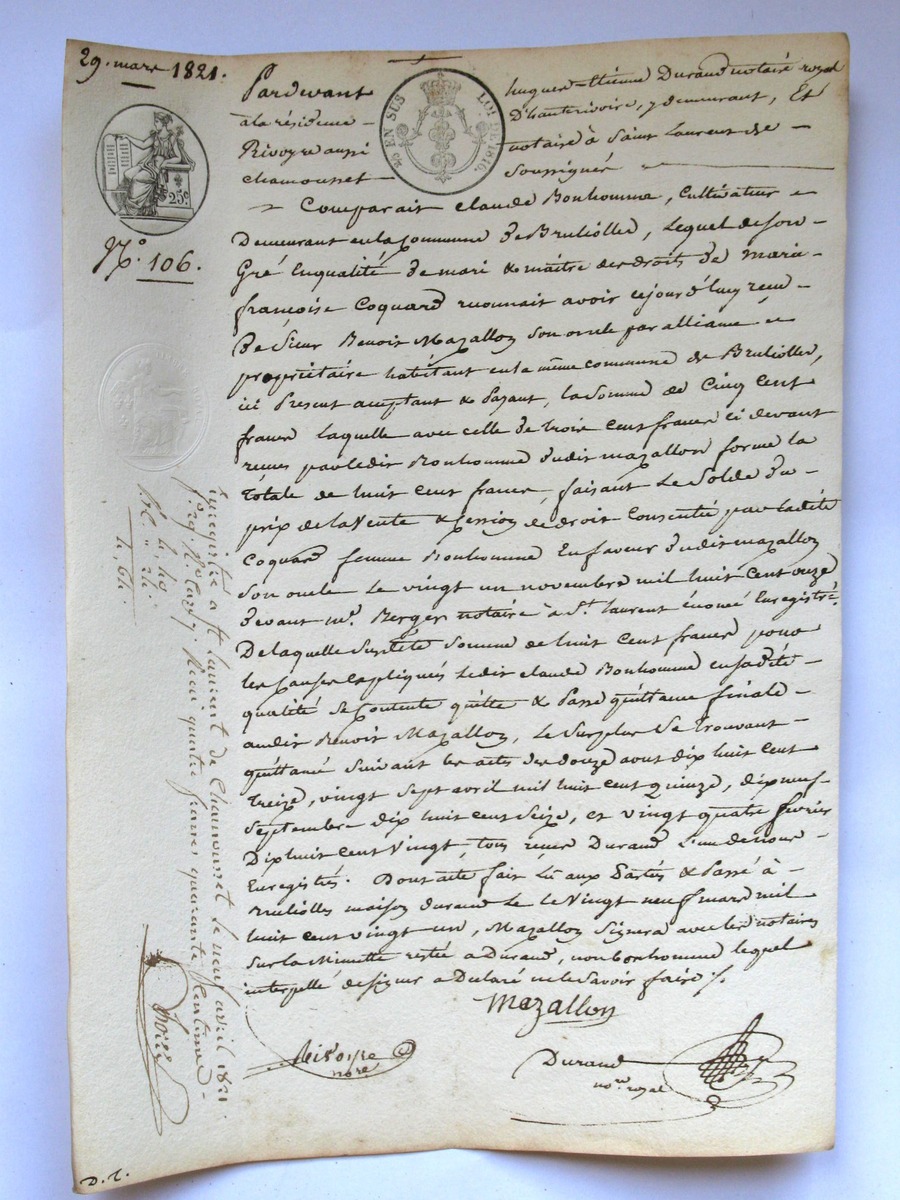 29. mars 1821.
Pardevant hugues-Etienne Durand notaire royal
à la résidence D'hauterivoire, y demeurant, Et
Rivoyre aussi notaire à Saint Laurent de
chamousset Soussignés
EN SUS LOI 1816.
25c
N.o 106.
Comparait Claude Bonhomme, Cultivateur
Demeurant en la Commune de Brullioles, Lequel de Son
Gré En qualité de mari & maître des droits de marie
françoise Coquard reconnait avoir cejourd'huy recu
De Sieur Benoit Mazallon Son oncle par alliance
propriétaire habitant en la même commune de Brullioles,
ici Present acceptant & Payant, la Somme de Cinq Cent
francs Laquelle avec celle de trois Cent francs ci devant
recues par ledit Bonhomme dudit mazallon forme la
totale de huit cent francs, faisant Le Solde du
prix de la Vente & Cession de droit Consentie par ladite
Coquard femme Bonhomme En faveur dudit mazallon
Son oncle Le vingt un novembre mil huit cent onze
devant me. Berger notaire à St. laurent énoncé Enregistré.
De laquelle Susdite Somme de huit Cent francs pour
les Causes Expliqués Ledit claude Bonhomme en Sadite
qualité Se Contente quitte & Passe quittance finale
audit Benoit Mazallon, Le Surplus Se trouvant
quittancé Suivant les actes des douze aout dix huit cent
treize, vingt Sept avril mil huit cent quinze, dix neuf
Septembre dix huit cent Seize, et vingt quatre fevrier
Dix huit Cent Vingt, tous recus Durand L'un de nous
Enregistrés. Dont acte fait Lu aux Parties & Passé à
Brullioles maison durand Le Vingt neuf mars mil
huit cent vingt un, Mazallon Signera avec les notaires
Sur la Minutte restée a Durand, non bonhomme lequel
interpellé de Signer a Déclaré ne le Savoir faire ./.
Mazallon
Rivoire
nore
Durand
nore. royal
Enregistré à St laurent de Chamousset le neuf avril 1821.
Reçu quatre francs quarante centimes
4. 40
4. 64
D. r.